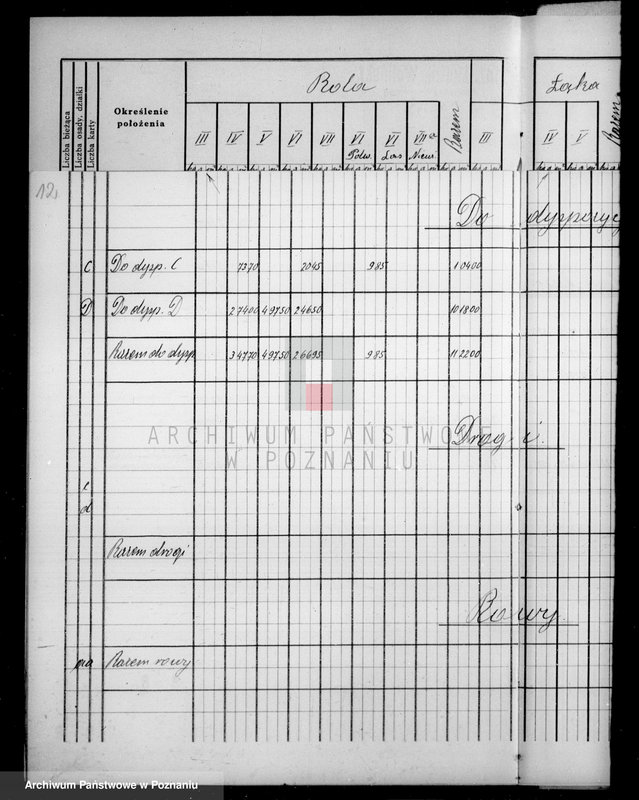 Rola
Łąka
Liczba bieżąca
Liczba osady, działki
Liczba karty
Określenie położenia
III IV V VI VII VI VI VIIa Razem III IV V Razem
Las Nieuż.
12.
Do dyspozycj
C Do dysp. C 7370 2045 985 10400
D Do dysp. D 27400 49750 24650 101800
Razem do dysp 34770 49750 26695 985 112200
ARCHIWUM PAŃSTWOWE
W POZNANIU
Drogi.
c
d
Razem drogi
Rowy.
Razem rowy
Archiwum Państwowe w Poznaniu